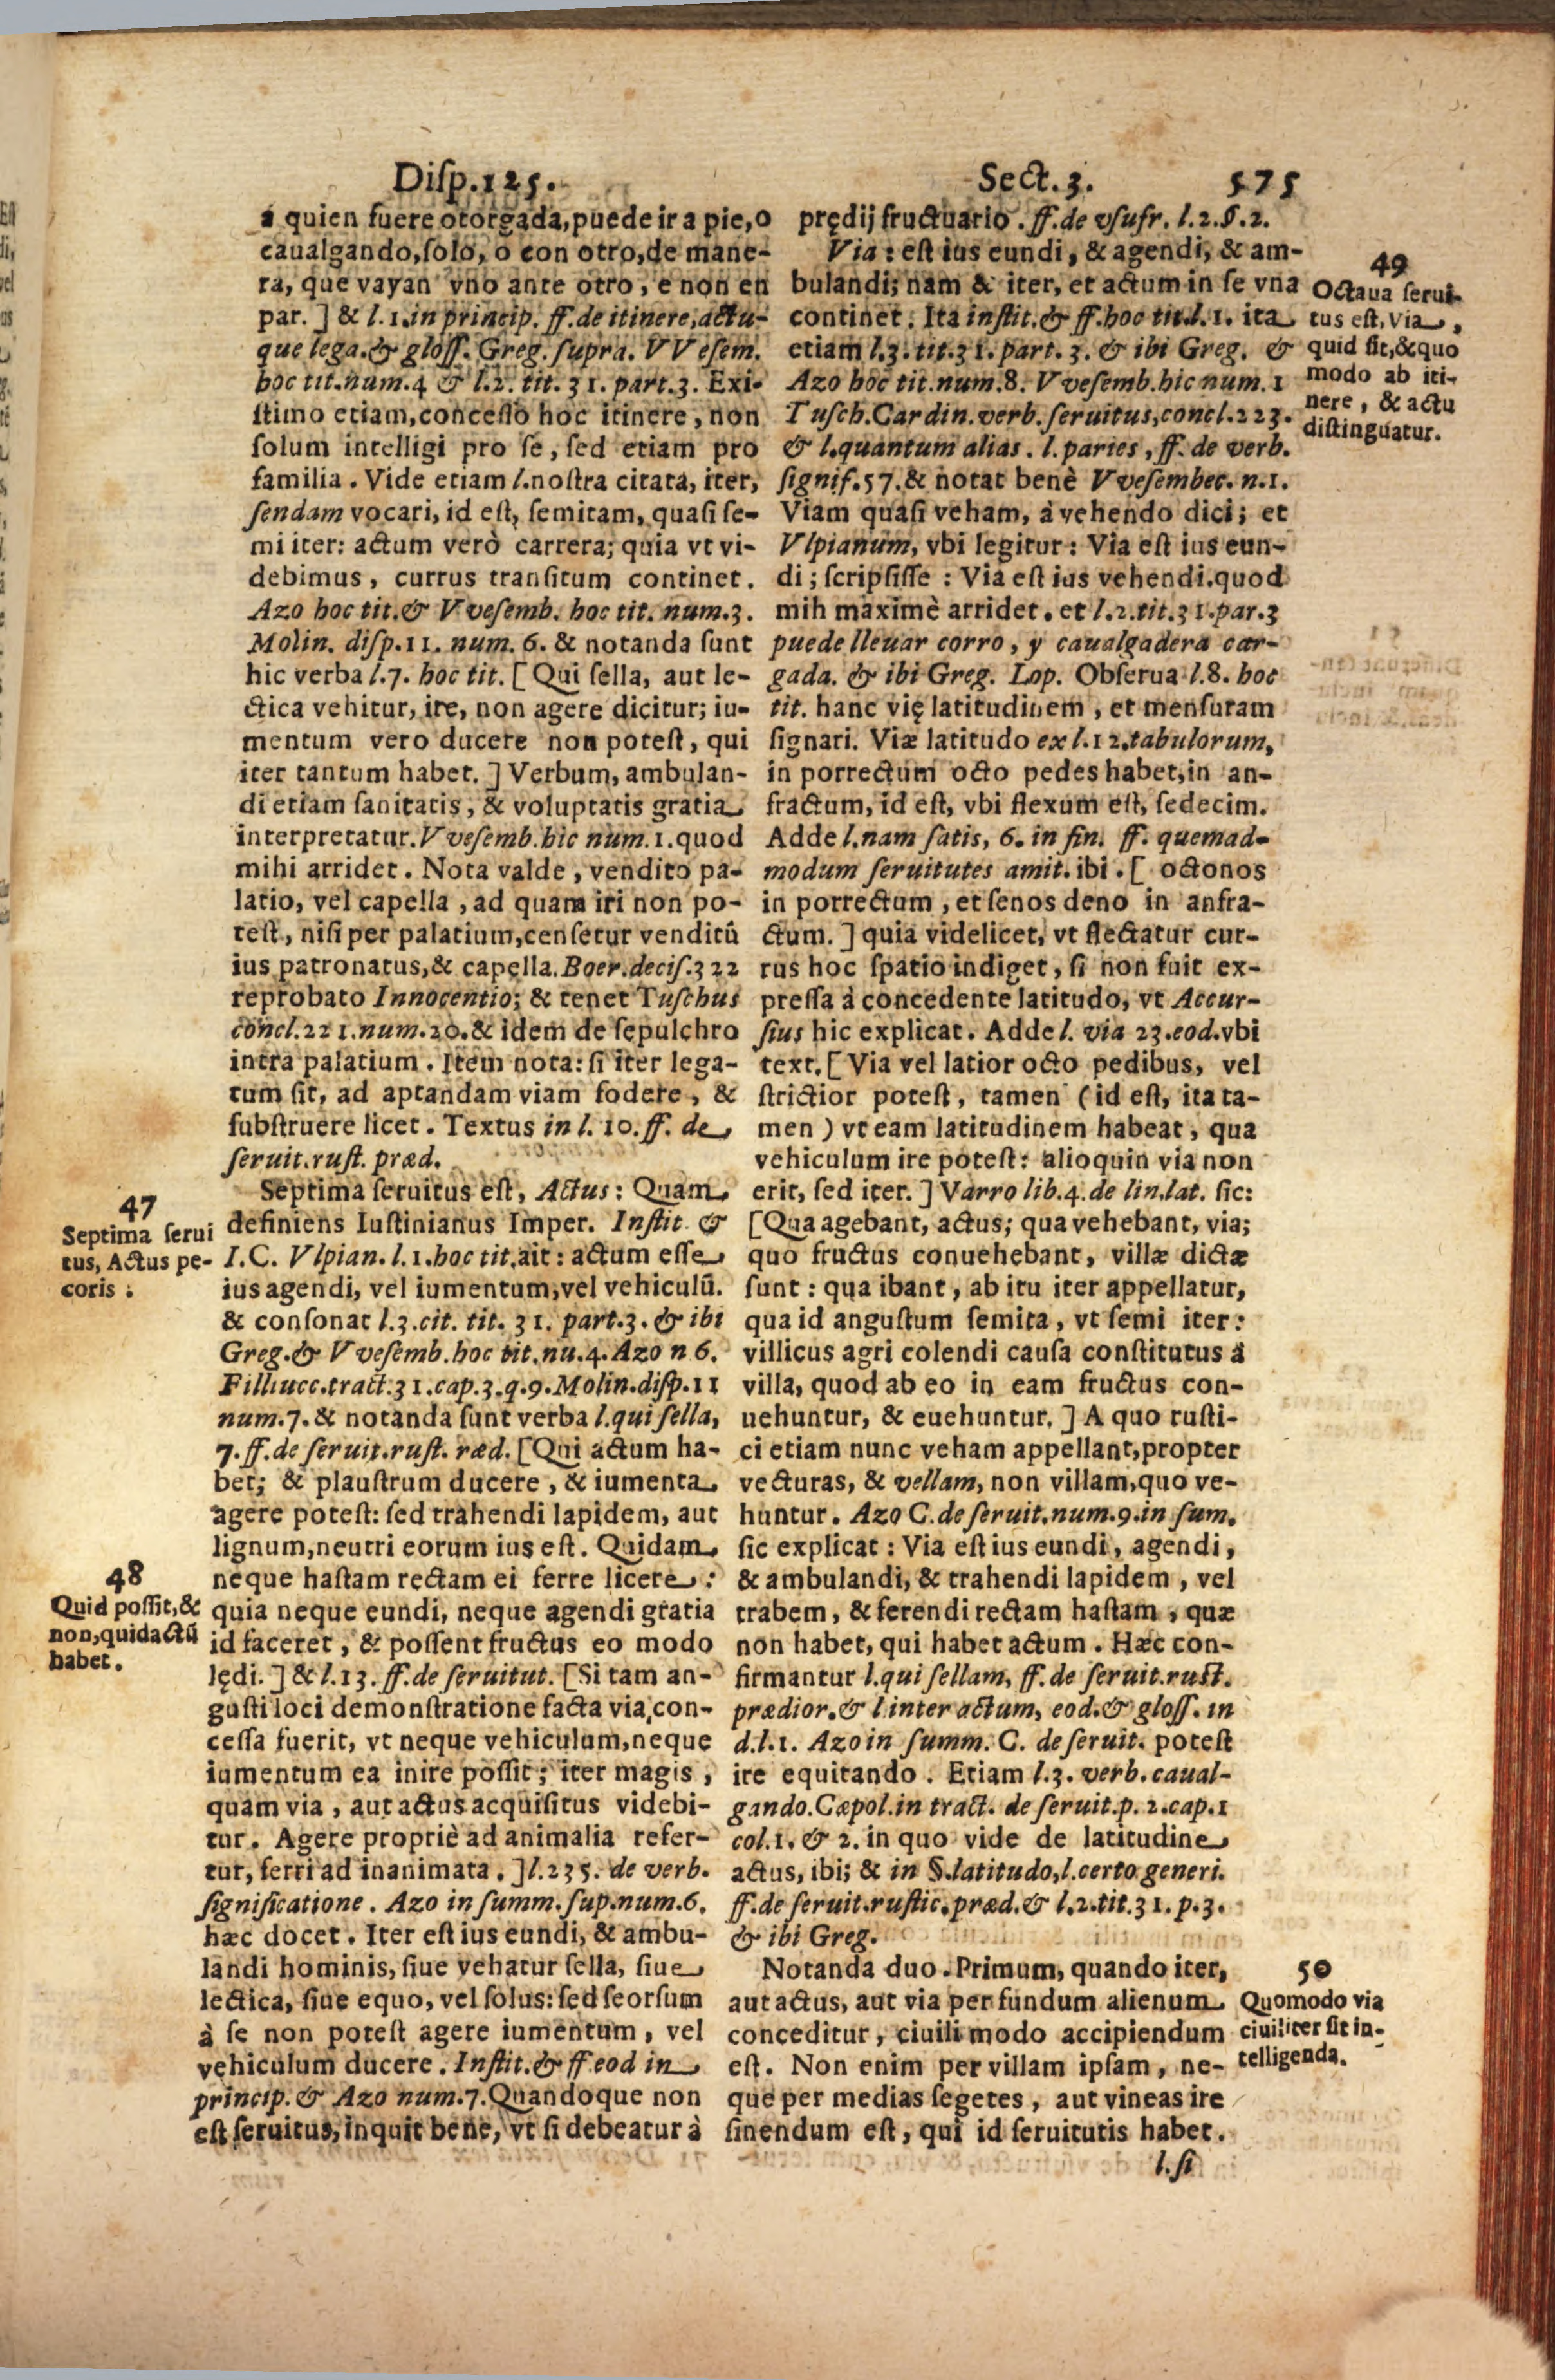 Disp.125. Sect.3. 575
á quien fuere otorgada,puede ir a pie,o
caualgando,solo, o con otro,de mane-
ra, que vayan vno ante otro, e non en
par. ] & l. 1.in princip. ff. de itinere,actu-
que lega.& gloss. Greg. supra. VVesem.
hoc tit.num.4 & l.2. tit. 31. part.3. Exi-
stimo etiam,concesso hoc itinere, non
solum intelligi pro se, sed etiam pro
familia. Vide etiam l.nostra citata, iter,
sendam vocari, id est, semitam, quasi se-
mi iter: actum verò carrera; quia vt vi-
debimus, currus transitum continet.
Azo hoc tit.& Vvesemb. hoc tit. num.3.
Molin. disp.11. num. 6. & notanda sunt
hic verba l.7. hoc tit. [ Qui sella, aut le-
ctica vehitur, ire, non agere dicitur; iu-
mentum vero ducere non potest, qui
iter tantum habet. ] Verbum, ambulan-
di etiam sanitatis, & voluptatis gratia
interpretatur.Vvesemb.hic num.1.quod
mihi arridet. Nota valde, vendito pa-
latio, vel capella, ad quam iri non po-
test, nisi per palatium,censetur venditū
ius patronatus,& capella.Boer.decis.322
reprobato Innocentio; & tenet Tuschus
concl.221.num.20.& idem de sepulchro
intra palatium. Item nota: si iter lega-
tum sit, ad aptandam viam fodere, &
substruere licet. Textus in l. 10. ff. de
seruit.rust. præd.
47
Septima serui
tus, Actus pe-
coris.
Septima seruitus est, Actus: Quam
definiens Iustinianus Imper. Instit. &
I.C. Vlpian. l.1.hoc tit.ait: actum esse
ius agendi, vel iumentum,vel vehiculū.
& consonat l.3.cit. tit. 31. part.3. & ibi
Greg.& Vvesemb.hoc tit.nu.4.Azo n 6.
Filliucc.tract.31.cap.3.q.9.Molin.disp.11
num.7.& notanda sunt verba l.qui sella,
7.ff.de seruit.rust. ræd. [Qui actum ha-
bet; & plaustrum ducere, & iumenta
agere potest: sed trahendi lapidem, aut
lignum,neutri eorum ius est. Quidam
neque hastam rectam ei ferre licere:
48
Quid possit,&
non,quidactū
habet.
quia neque eundi, neque agendi gratia
id faceret, & possent fructus eo modo
lędi. ] & l.13. ff. de seruitut. [Si tam an-
gusti loci demonstratione facta via con-
cessa fuerit, vt neque vehiculum,neque
iumentum ea inire possit; iter magis,
quam via, aut actus acquisitus videbi-
tur. Agere propriè ad animalia refer-
tur, ferri ad inanimata. ] l.235. de verb.
significatione. Azo in summ.sup.num.6.
hæc docet. Iter est ius eundi, & ambu-
landi hominis, siue vehatur sella, siue
lectica, siue equo, vel solus: sed seorsum
à se non potest agere iumentum, vel
vehiculum ducere. Instit.& ff eod in
princip.& Azo num.7.Quandoque non
est seruitus, inquit bene, vt si debeatur à
prędij fructuario. ff. de vsufr. l.2.§.2.
Via: est ius eundi, & agendi, & am-
bulandi; nam & iter, et actum in se vna
continet. Ita instit.& ff.hoc tit.l.1. ita
etiam l.3. tit.31. part. 3. & ibi Greg. &
Azo hoc tit.num.8. Vvesemb.hic num.1
Tusch.Cardin.verb.seruitus,concl.223.
& l.quantum alias. l.paries, ff. de verb.
signif.57.& notat benè Vvesembec. n.1.
49
Octaua serui-
tus est, Via,
quid sit,&quo
modo ab iti-
nere, & actu
distinguatur.
Viam quasi veham, à vehendo dici; et
Vlpianum, vbi legitur: Via est ius eun-
di; scripsisse: Via est ius vehendi.quod
mih maximè arridet. et l.2.tit.31.par.3
puede lleuar corro, y caualgadera car-
gada. & ibi Greg. Lop. Obserua l.8. hoc
tit. hanc vię latitudinem, et mensuram
signari. Viæ latitudo ex l.12.tabulorum,
in porrectum octo pedes habet,in an-
fractum, id est, vbi flexum est, sedecim.
Adde l.nam satis, 6. in fin. ff. quemad-
modum seruitutes amit. ibi. [ octonos
in porrectum, et senos deno in anfra-
ctum. ] quia videlicet, vt flectatur cur-
rus hoc spatio indiget, si non fuit ex-
pressa à concedente latitudo, vt Accur-
sius hic explicat. Adde l. via 23.eod.vbi
text. [ Via vel latior octo pedibus, vel
strictior potest, tamen (id est, ita ta-
men ) vt eam latitudinem habeat, qua
vehiculum ire potest: alioquin via non
erit, sed iter. ] Varro lib.4.de lin.lat. sic:
[Qua agebant, actus; qua vehebant, via;
quo fructus conuehebant, villæ dictæ
sunt: qua ibant, ab itu iter appellatur,
qua id angustum semita, vt semi iter:
villicus agri colendi causa constitutus á
villa, quod ab eo in eam fructus con-
uehuntur, & euehuntur. ] A quo rusti-
ci etiam nunc veham appellant,propter
vecturas, & vellam, non villam,quo ve-
huntur. Azo C.de seruit.num.9.in sum.
sic explicat: Via est ius eundi, agendi,
& ambulandi, & trahendi lapidem, vel
trabem, & ferendi rectam hastam, quæ
non habet, qui habet actum. Hæc con-
firmantur l.qui sellam, ff. de seruit.rust.
prædior.& l inter actum, eod.& gloss. in
d.l.1. Azo in summ. C. de seruit. potest
ire equitando. Etiam l.3. verb.caual-
gando.Cæpol.in tract. de seruit.p. 2.cap.1
col.1. & 2. in quo vide de latitudine
actus, ibi; & in §.latitudo,l.certo generi.
ff.de seruit.rustic.præd.& l.2.tit.31.p.3.
& ibi Greg.
Notanda duo.Primum, quando iter,
aut actus, aut via per fundum alienum
conceditur, ciuili modo accipiendum
est. Non enim per villam ipsam, ne-
que per medias segetes, aut vineas ire
sinendum est, qui id seruitutis habet.
50
Quomodo via
ciuiliter sit in-
telligenda.
l.si